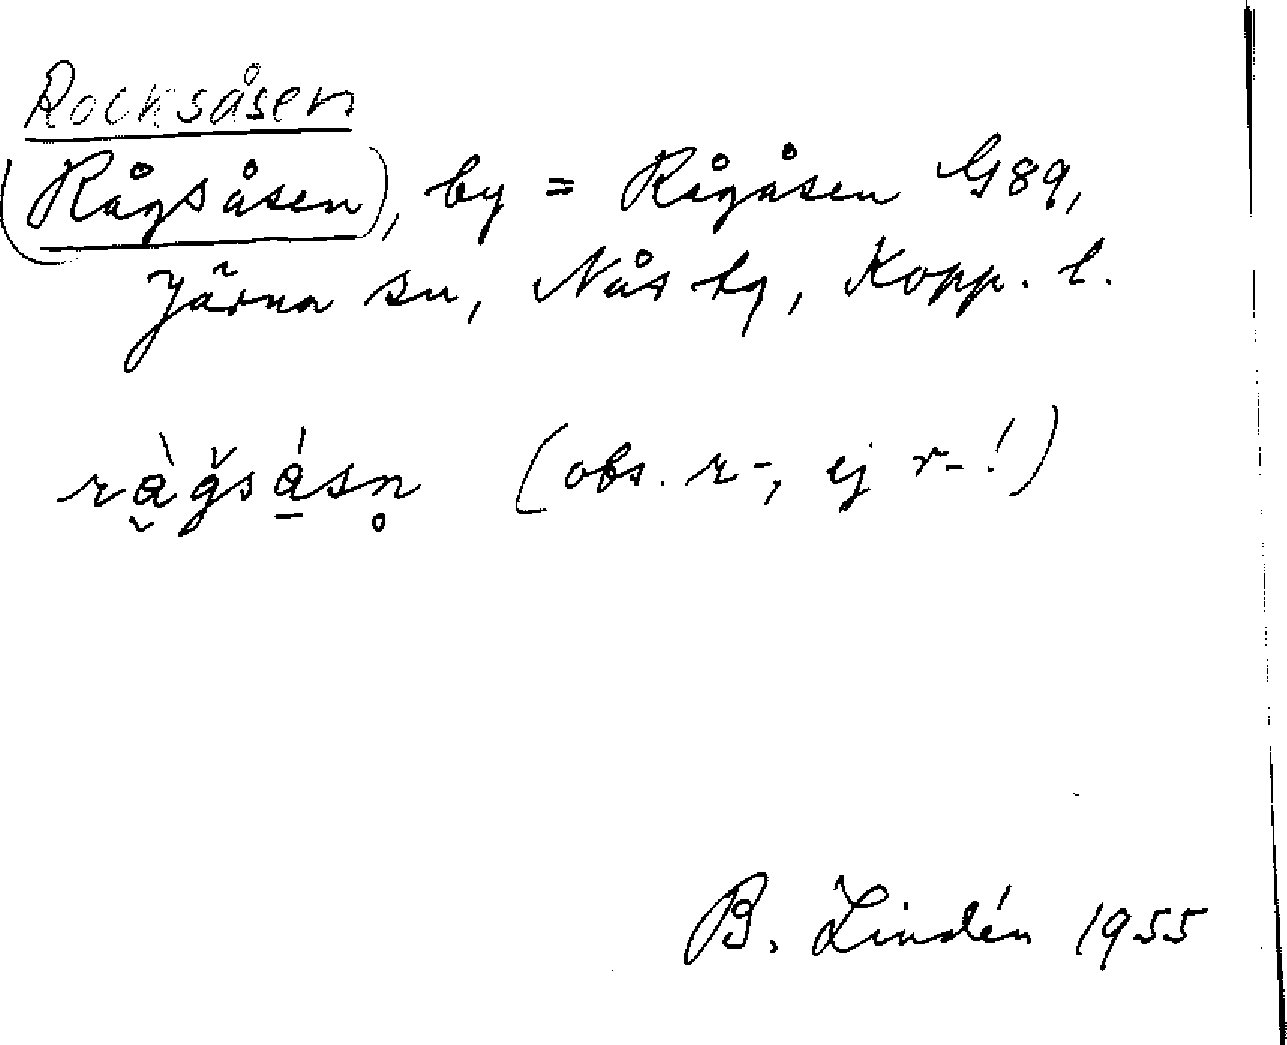 Rocksåsen
(Rågsåsen), by = Rågåsen G89,
Järna sn, Nås tg, Kopp. l.
rå̀ğsǻsn̥ (obs. r-, ej r-!)
B. Lindén 1955